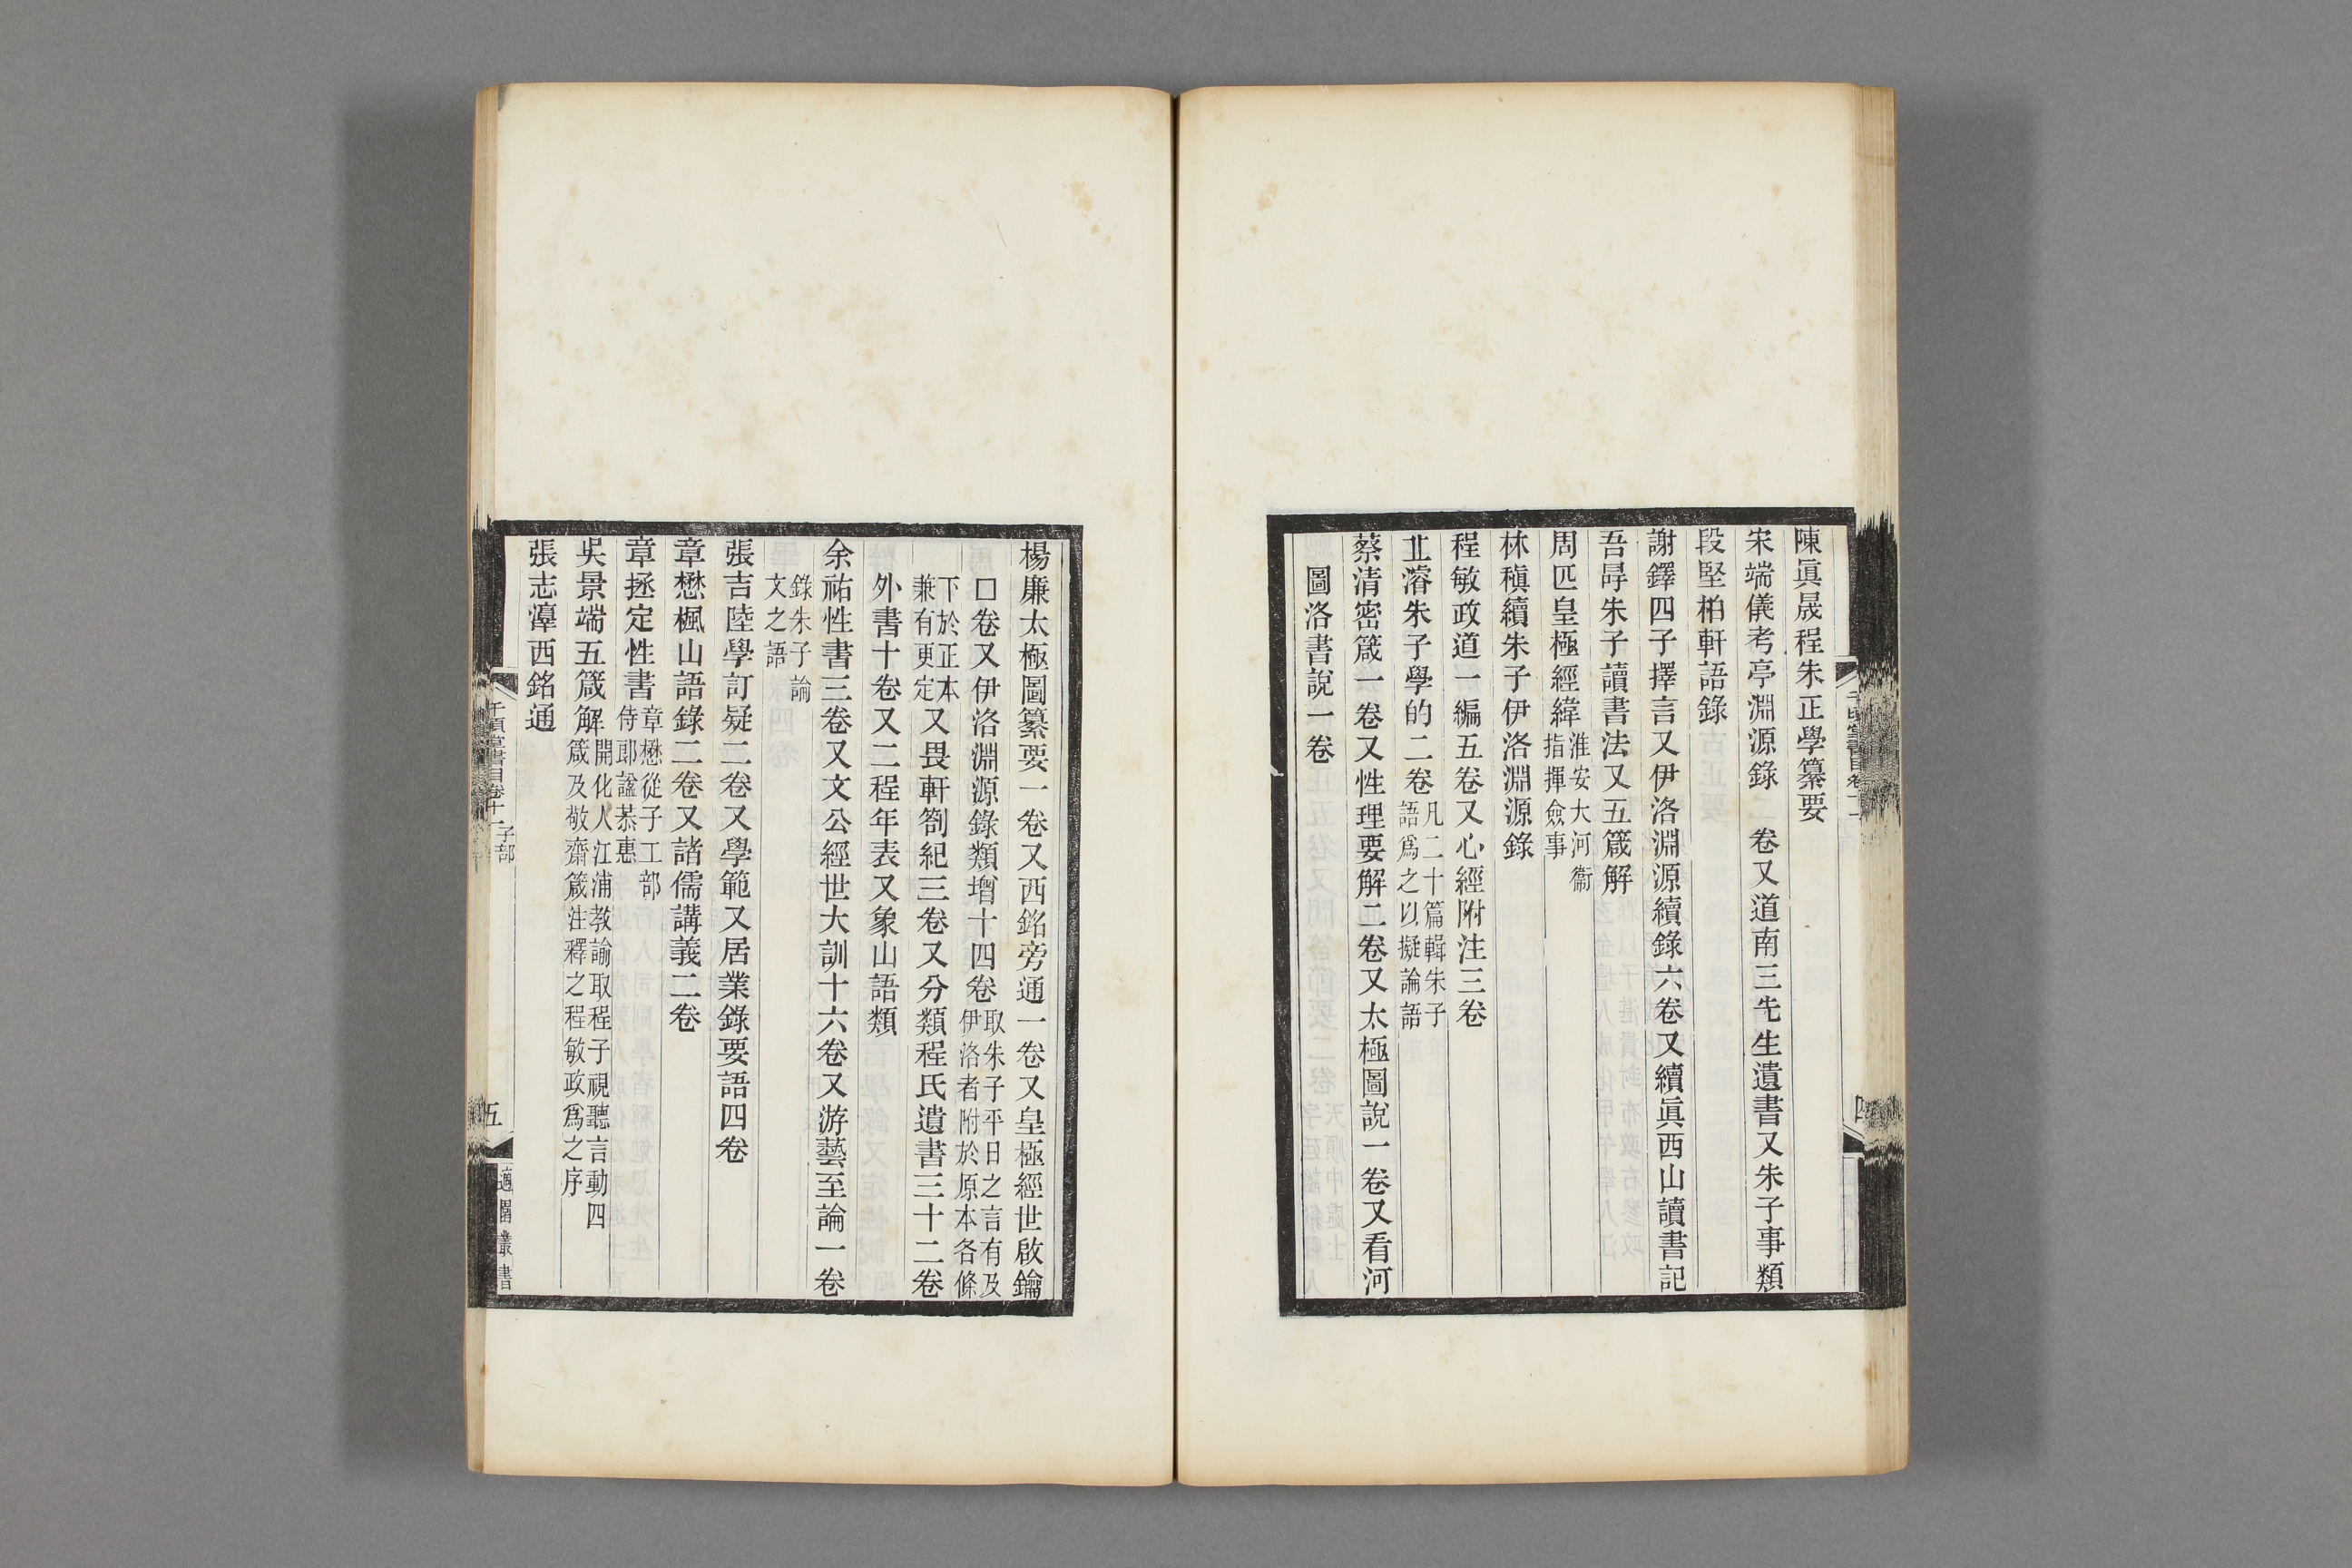 陳眞晟程朱正學纂要
宋端儀考亭淵源錄 卷又道南三先生遺書又朱子事類
段堅柏軒語錄
謝鐸四子擇言又伊洛淵源續錄六卷又續眞西山讀書記
吾㝵朱子讀書法又五箴解
周匹皇極經緯淮安大河衞指揮僉事
林稹續朱子伊洛淵源錄
程敏政道一編五卷又心經附注三卷
丠濬朱子學的二卷凡二十篇輯朱子語爲之以擬論語
蔡清密箴一卷又性理要解二卷又太極圖說一卷又看河
圖洛書說一卷
楊廉太極圖纂要一卷又西銘旁通一卷又皇極經世啟鑰
口卷又伊洛淵源錄類增十四卷取朱子平日之言有及伊洛者附於原本各條
下於正本兼有更定又畏軒劄紀三卷又分類程氏遺書三十二卷
外書十卷又二程年表又象山語類
余祐性書三卷又文公經世大訓十六卷又游藝至論一卷
錄朱子論文之語
張吉陸學訂疑二卷又學範又居業錄要語四卷
章懋楓山語錄二卷又諸儒講義二卷
章拯定性書章懋從子工部侍郎諡恭惠
吳景端五箴解開化人江浦教諭取程子視聽言動四箴及敬齋箴注釋之程敏政爲之序
張志淳西銘通
千頃堂書目卷十一 子部
五
適園叢書